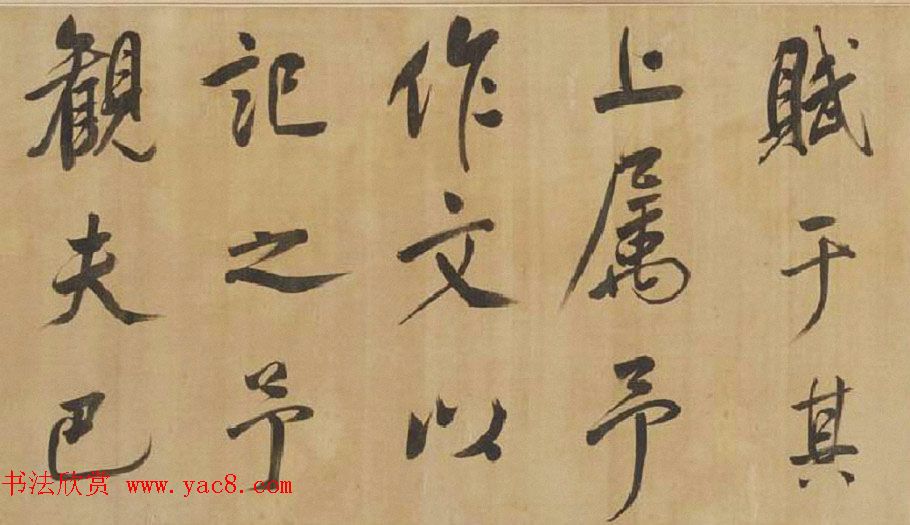 賦于其
上属予
作文以
記之予
觀夫巴
书法欣赏 www.yac8.com